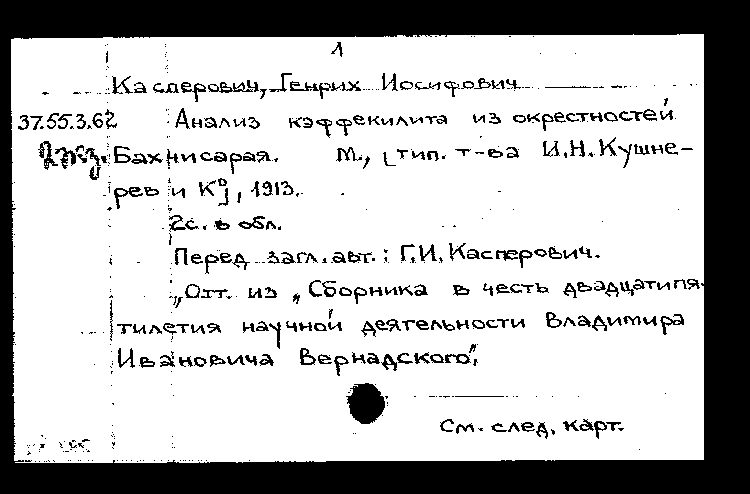 1
Касперович, Генрих Иосифович
37.55.3.62 Анализ кэффекилита из окрестностей
2 экз. Бахчисарая. М., [тип. т-ва И.Н.Кушне-
рев и К⁰], 1913.
2с. в обл.
Перед загл. авт.: Г.И. Касперович.
„Отт. из „Сборника в честь двадцатипя-
тилетия научной деятельности Владимира
Ивановича Вернадского",
См. след. карт.